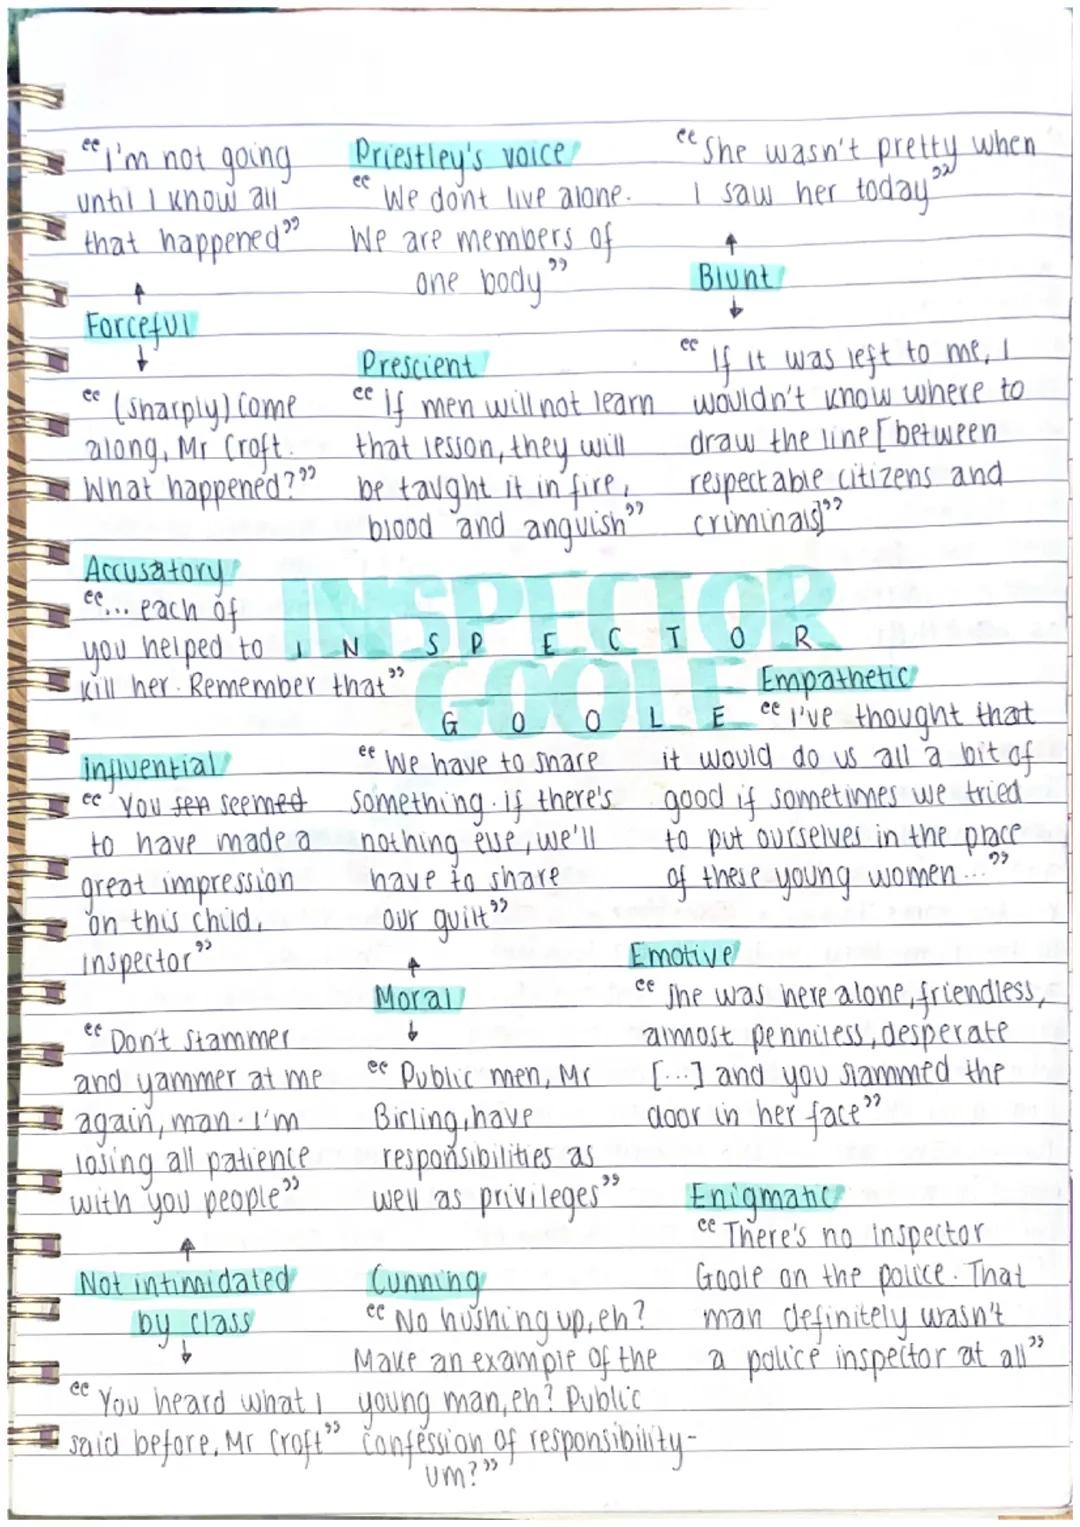 "I'm not going
until I know all
that happened"
Forceful
"(sharply) Come
along, Mr Croft.
What happened?"
Priestley's voice
"We dont live alone.
We are members of
one body"
Prescient
"If men will not learn
that lesson, they will
be taught it in fire,
blood and anguish"
"She wasn't pretty when
I saw her today"
Blunt
"If it was left to me, I
wouldn't know where to
draw the line [between
respectable citizens and
criminals]"
Accusatory
"... each of
you helped to
kill her. Remember that"
INSPECTOR
GOOLE
INSPECTOR
GOOLE
Empathetic
"I've thought that
it would do us all a bit of
good if sometimes we tried
to put ourselves in the place
of these young women..."
influential
"You seemed
to have made a
great impression
on this child,
inspector"
"We have to share
something. If there's
nothing else, we'll
have to share
our guilt"
Moral
"Public men, Mr
Birling, have
responsibilities as
well as privileges"
Emotive
"She was here alone, friendless,
almost penniless, desperate
[...] and you slammed the
door in her face"
"Don't stammer
and yammer at me
again, man. I'm
losing all patience
with you people"
Not intimidated
by class
"You heard what I
said before, Mr Croft"
Cunning
"No hushing up, eh?
Make an example of the
young man, eh? Public
confession of responsibility-
um?"
Enigmatic
"There's no inspector
Goole on the police. That
man definitely wasn't
a police inspector at all"